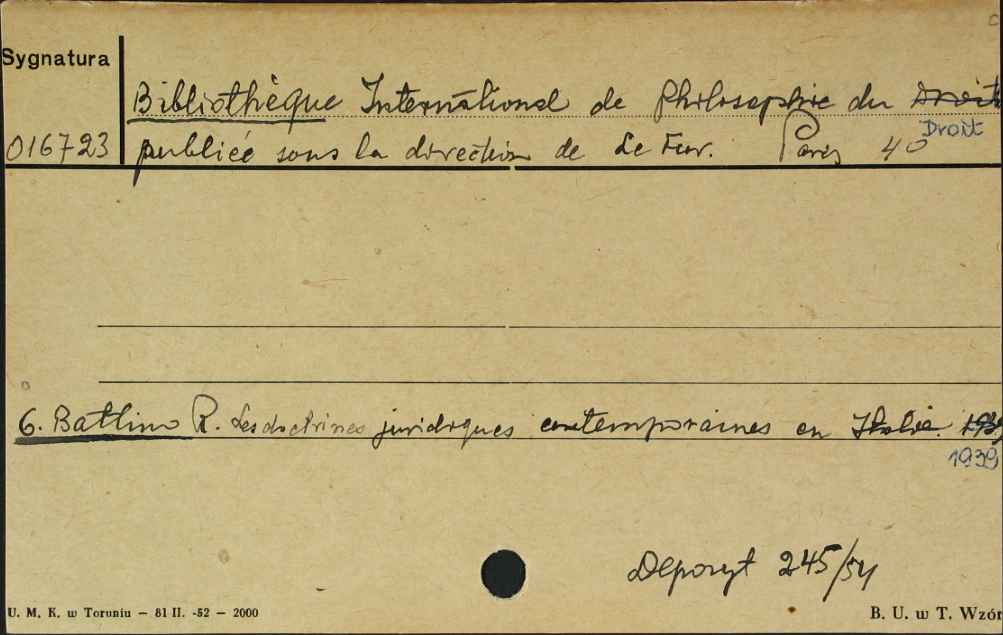 Sygnatura
Bibliothèque International de Philosophie du Droit
Droit
016723 publiée sous la direction de Le Fur. Paris 40
6. Battino R. Les doctrines juridiques contemporaines en Italie. 1939
1939
Depozyt 245/54
U. M. K. w Toruniu — 81 II. -52 — 2000
B. U. w T. Wzór